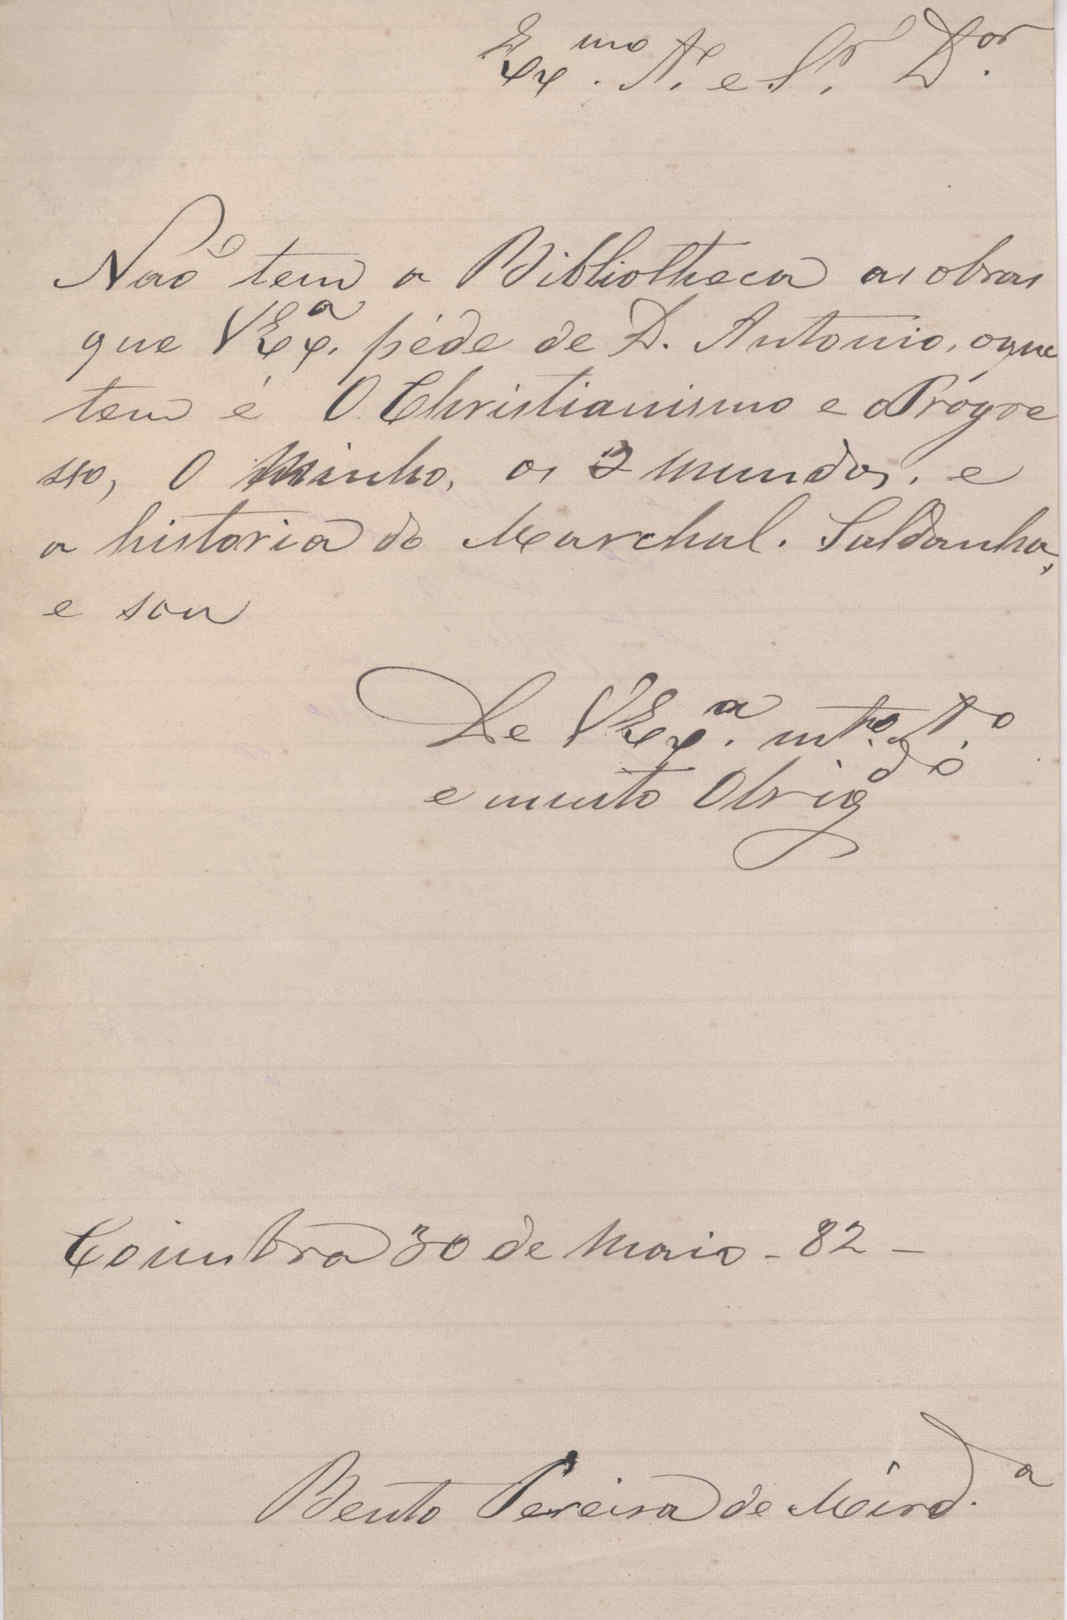 Ex.mo A.º e Sr. Dor.
Não tem a Bibliotheca as obras
que VEx.a péde de D. Antonio, o que
tem é O Christianismo e o Progre
sso, O Minho, os 2 mundos, e
a historia do Marchal. Saldanha,
e sou
De VEx.a mto. A.º
e muito Obrigdo
Coimbra 30 de Maio - 82 -
Bento Pereira de Mird.a